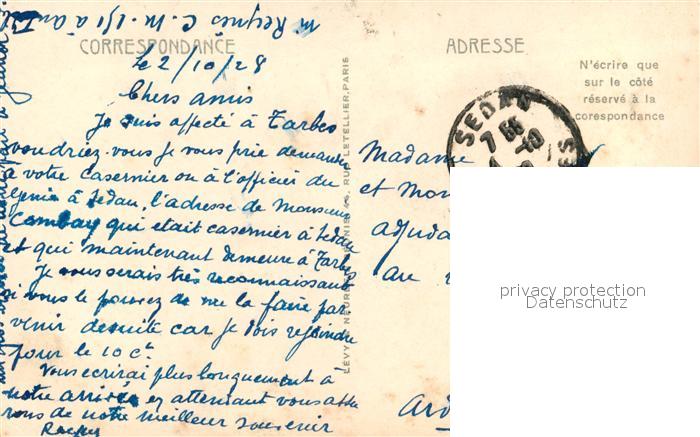 m Reynès C. M. 1/1 à
CORRESPONDANCE
le 2/10/28
Chers amis
Je suis affecté à Tarbes
voudriez-vous je vous prie demander
à votre casernier ou à l'officier du
génie à Sedan, l'adresse de Monsieur
Combay qui etait casernier à Sedan
et qui maintenant demeure à Tarbes
Je vous serais très reconnaissant
si vous le pouviez de me la faire par
venir desuite car je dois rejoindre
pour le 10 ct.
Vous ecrirai plus longuement à
notre arrivée en attendant vous adre
sons de notre meilleur souvenir
ADRESSE
N'écrire que
sur le côté
réservé à la
corespondance
SEDAN
7
Madame
et Mon
adjuda
au
Ard
LÉVY & NEURDEIN RÉUNIS, 44, RUE LETELLIER, PARIS
privacy protection
Datenschutz